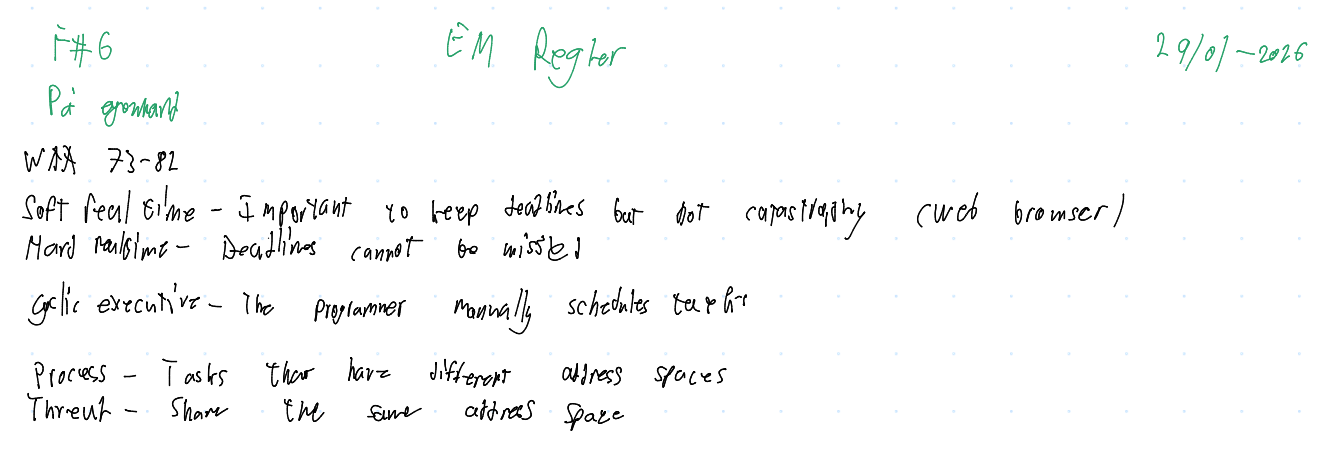 F#6 EM Regler 29/01-2026
På
WAA 73-82
Soft real time - Important to keep deadlines but not catastrophy (web browser)
Hard realtime - Deadlines cannot be missed
Cyclic executive - The programmer manually schedules
Process - Tasks that have different address spaces
Thread - Share the same address space